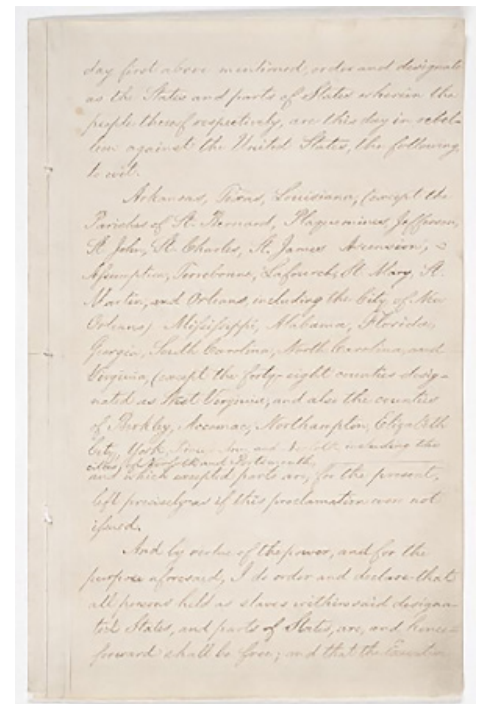 day first above mentioned, order and designate
as the States and parts of States wherein the
people thereof respectively, are this day in rebel-
lion against the United States, the following
to wit:
Arkansas, Texas, Louisiana, (except the
Parishes of St. Bernard, Plaquemines, Jefferson,
St. John, St. Charles, St. James, Ascension,
Assumption, Terrebonne, Lafourche, St. Mary, St.
Martin, and Orleans, including the City of New
Orleans) Mississippi, Alabama, Florida,
Georgia, South Carolina, North Carolina, and
Virginia, (except the forty-eight counties desig-
nated as West Virginia, and also the counties
of Berkley, Accomac, Northampton, Elizabeth
City, York, Princess Ann, and Norfolk, including the
cities of Norfolk and Portsmouth,
and which excepted parts are, for the present,
left precisely as if this proclamation were not
issued.
And by virtue of the power, and for the
purpose aforesaid, I do order and declare that
all persons held as slaves within said designa-
ted States, and parts of States, are, and hence-
forward shall be free; and that the Executive